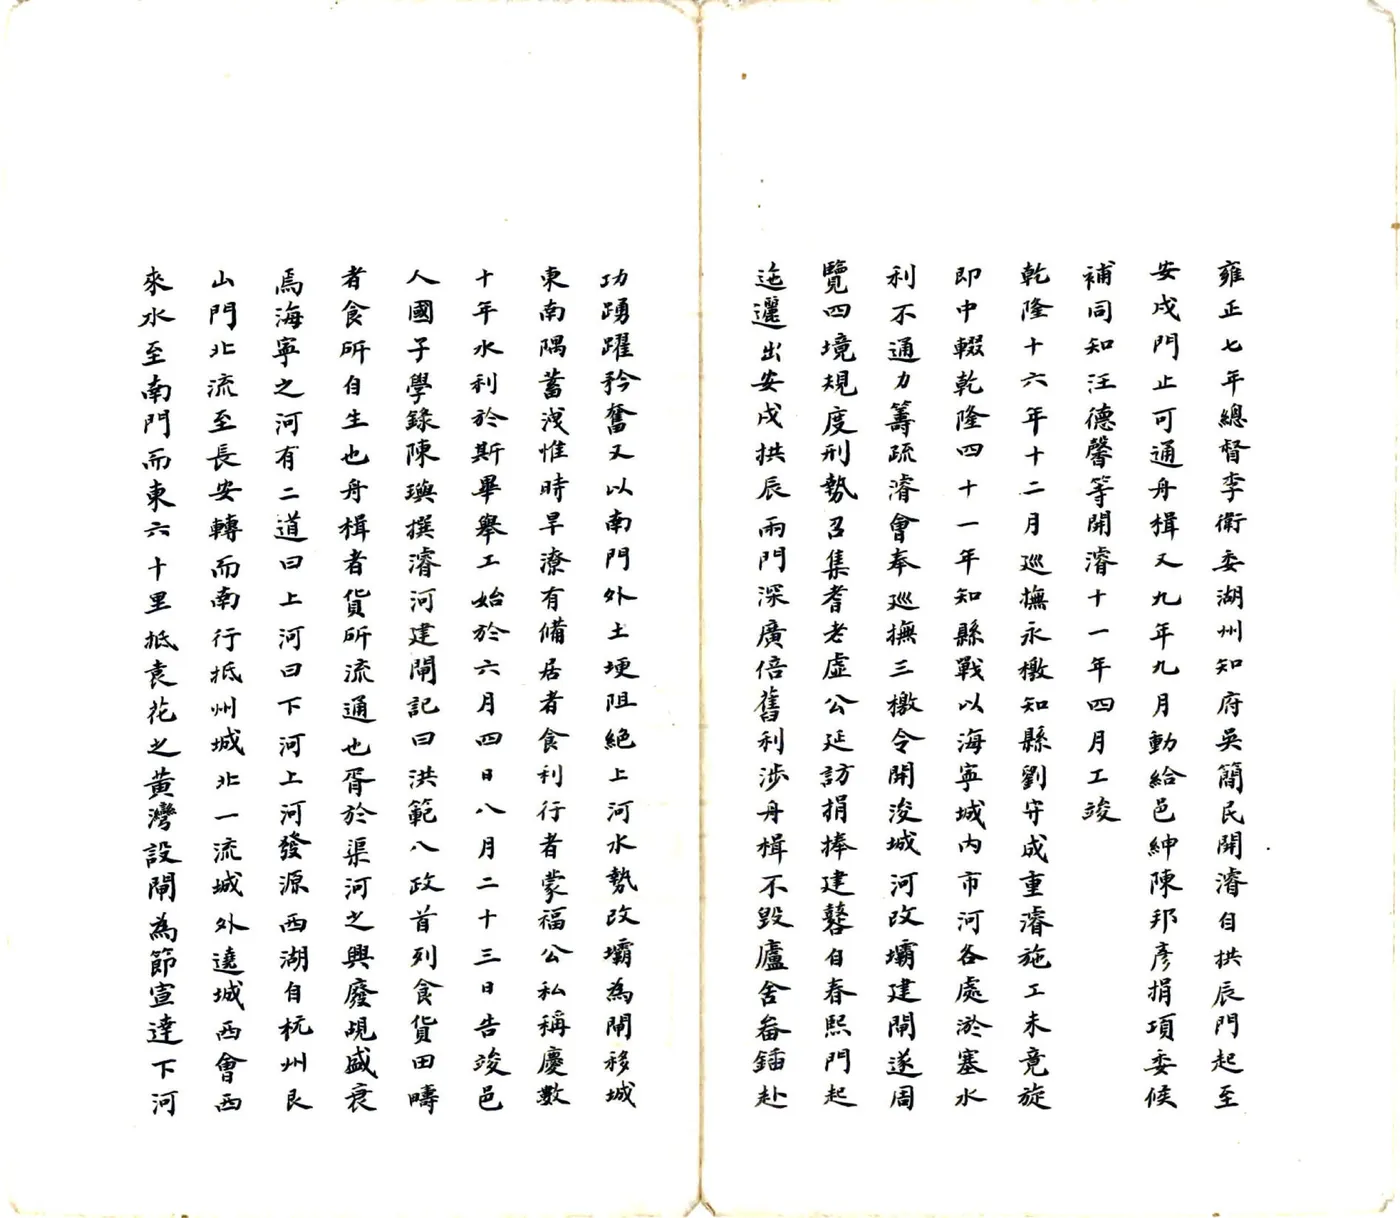 雍正七年總督李衛委湖州知府吳簡民開濬自拱辰門起至
安戍門止可通舟楫又九年九月動給邑紳陳邦彥捐項委候
補同知汪德馨等開濬十一年四月工竣
乾隆十六年十二月巡撫永檄知縣劉守成重濬施工未竟旋
即中輟乾隆四十一年知縣戰以海寧城內市河各處淤塞水
利不通力籌疏濬會奉巡撫三檄令開浚城河改壩建閘遂周
覽四境規度刑勢召集耆老虛公延訪捐捧建鼛自春熙門起
迤邐出安戍拱辰兩門深廣倍舊利涉舟楫不毀廬舍畚鍤赴
功踴躍矜奮又以南門外土埂阻絕上河水勢改壩為閘移城
東南隅蓄洩惟時旱潦有備居者食利行者蒙福公私稱慶數
十年水利於斯畢舉工始於六月四日八月二十三日告竣邑
人國子學錄陳璵撰濬河建閘記曰洪範八政首列食貨田疇
者食所自生也舟楫者貨所流通也胥於渠河之興廢覘盛衰
焉海寧之河有二道曰上河曰下河上河發源西湖自杭州艮
山門北流至長安轉而南行抵州城北一流城外遶城西會西
來水至南門而東六十里抵袁花之黃灣設閘為節宣達下河